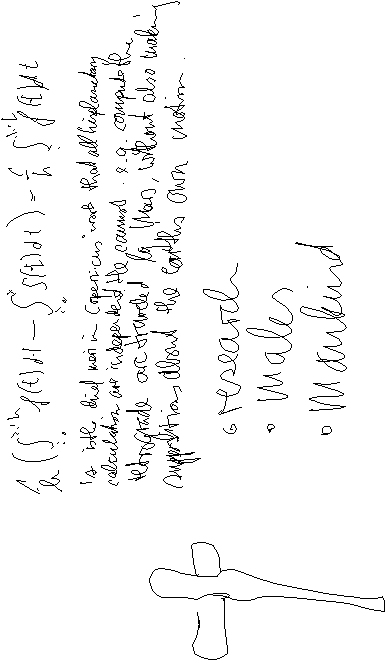 1/h (∫_{x_0}^{x+h} f(t)dt − ∫_{x_0}^{x} f(t)dt) = 1/h ∫_{x}^{x+h} f(t)dt
is the chief in Copernicus that all planetary
calculation are independent. He cannot e.g. compute the
retrograde arc traveled by Mars, without also making
suppositions about the Earths own motion.
research
Males
Mankind